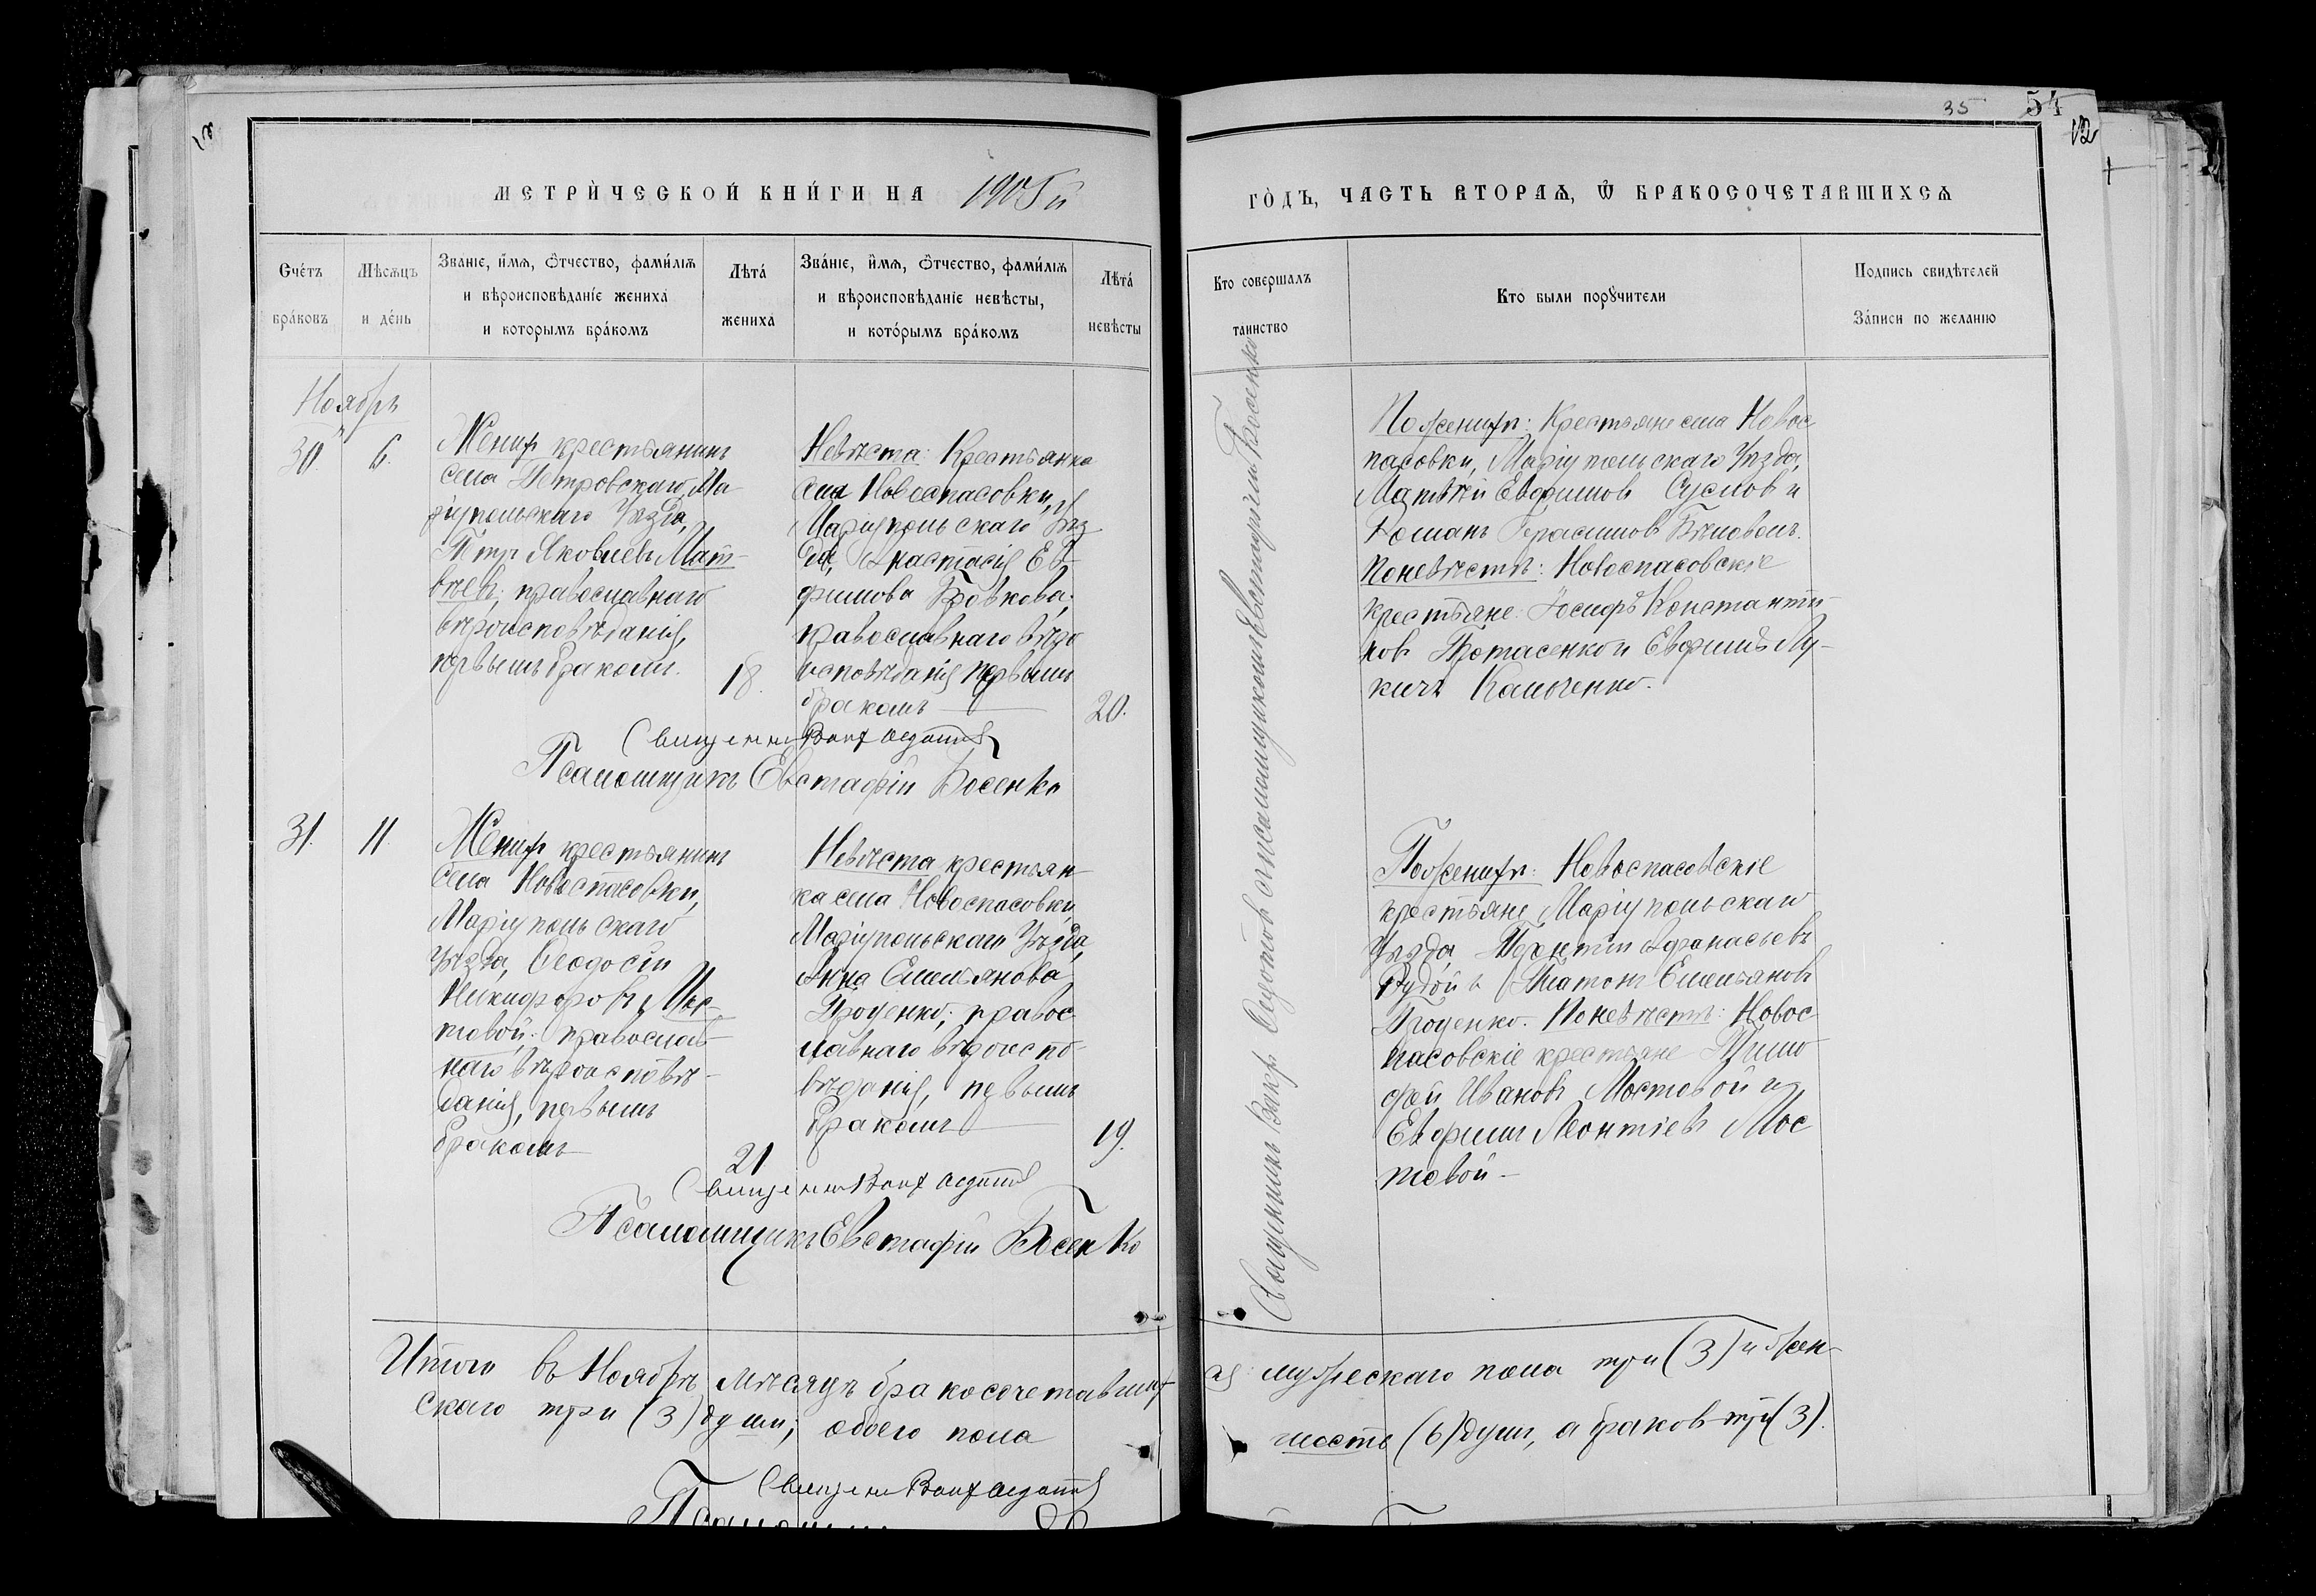 35 54
12
МЕТРИЧЕСКОЙ КНИГИ НА 1905й
ГОДЪ, ЧАСТЬ ВТОРАЯ, Ѿ БРАКОСОЧЕТАВШИХСЯ
Счетъ браковъ
Мѣсяцъ и день
Званіе, имя, отчество, фамилія
и вѣроисповѣданіе жениха
и которымъ бракомъ
Лѣта жениха
Званіе, имя, отчество, фамилія
и вѣроисповѣданіе невѣсты,
и которымъ бракомъ
Лѣта невѣсты
Кто совершалъ таинство
Кто были поручители
Подпись свидѣтелей
Записи по желанію
Ноябрь
30 6.
Женихъ крестьянинъ
села Петровскаго, Ма-
ріупольскаго Уѣзда,
Петр Яковлевъ Мат-
вѣевъ; православнаго
вѣроисповѣданія,
первымъ бракомъ.
18.
Невѣста: Крестьянка
села Новоспасовки,
Маріупольскаго Уѣз
да, Анастасія Ев-
фимова Бровкова;
православнаго вѣро
исповѣданія первымъ
бракомъ
20.
Священник Вакх Федотов
Псаломщикъ Евстафій Босенко
Поженихѣ: Крестьяне села Новос
пасовки, Маріупольскаго Уѣзда,
Матвѣй Евфимов Суслов и
Романъ Герасимов Бѣловолъ.
Поневѣстѣ: Новоспасовскіе
крестьяне: Іосифъ Константи-
нов Протасенко и Евфимъ Лу-
кичъ Кальченко.
31. 11.
Женихъ крестьянинъ
села Новоспасовки,
Маріупольскаго
Уѣзда, Феодосій
Никифоровъ Мос-
товой; православ-
наго вѣроисповѣ-
данія, первымъ
бракомъ
21
Невѣста крестьян-
ка села Новоспасовки,
Маріупольскаго Уѣзда,
Анна Емельянова
Проценко; правос-
лавнаго вѣроиспо-
вѣданія, первымъ
бракомъ
19.
Священник Вакх Федотов
Псаломщикъ Евстафій Босенко
Поженихѣ: Новоспасовскіе
крестьяне, Маріупольскаго
Уѣзда, Терентій Афанасьевъ
Рудой и Платонъ Емельянов
Проценко. Поневѣстѣ: Новос
пасовскіе крестьяне
Ивановъ Мостовой и
Евфимъ Леонтіевъ Мос
товой-
Священникъ Вакх Федотов с псаломщикомъ Евстафіем Босенко
Итого въ Ноябрѣ мѣсяцѣ бракосочетавших
ся: мужескаго пола три (3) и жен-
скаго три (3) души; обоего пола
шесть (6) душ, а браков три (3).
Священник Вакх Федотов